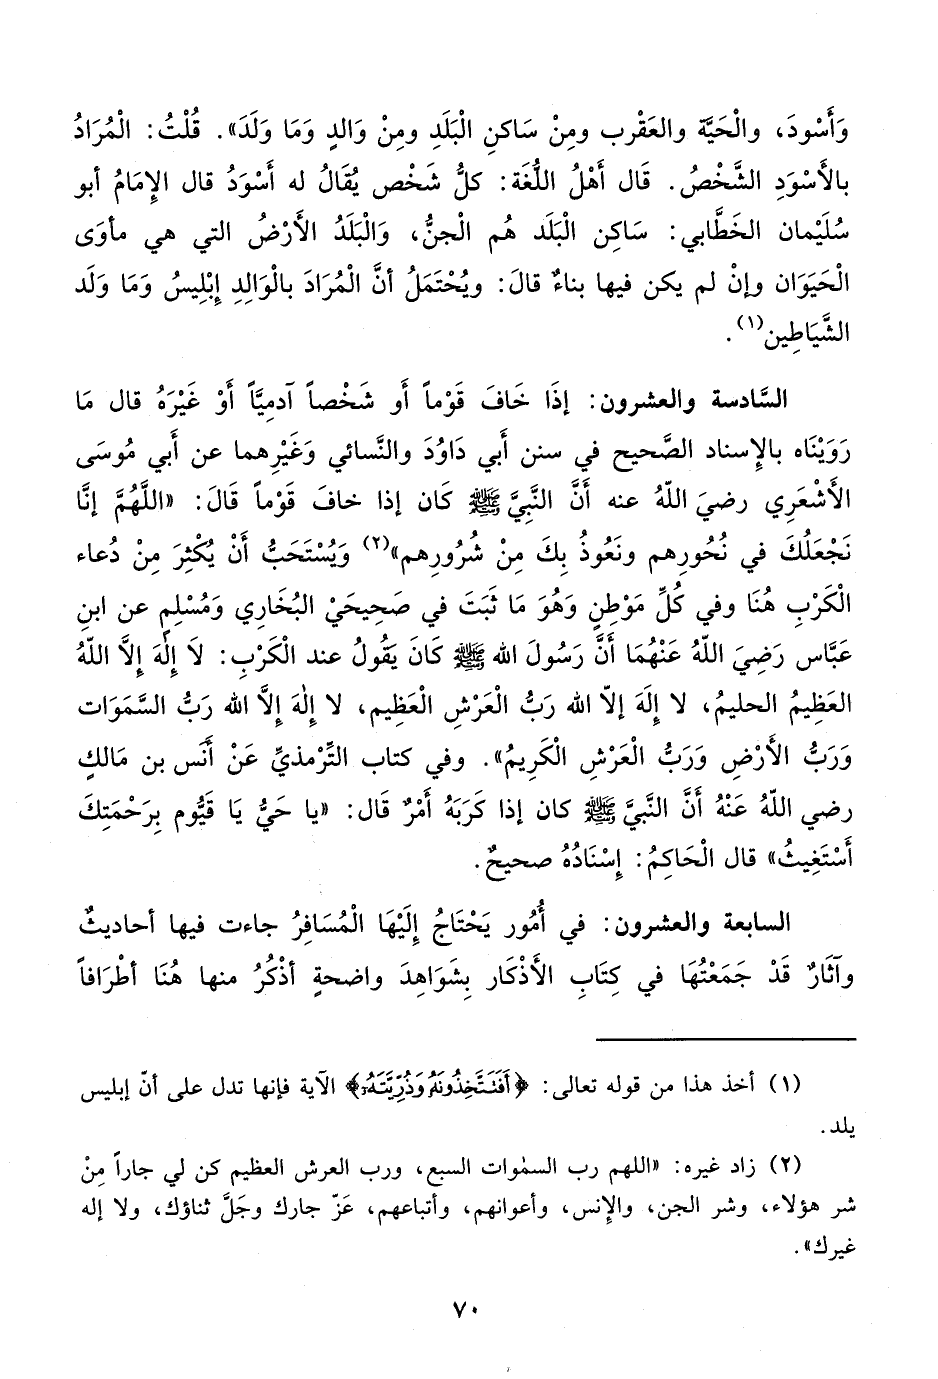 وَأَسْودَ، والْحَيَّة والعَقْرب ومِنْ سَاكنِ الْبَلَدِ ومِنْ وَالدٍ وَمَا وَلَدَ». قُلْتُ: الْمُرَادُ
بالأَسْوَدِ الشَّخْصُ. قَال أَهْلُ اللُّغَة: كلُّ شَخْص يُقَالُ له أَسْوَدُ قال الإِمَامُ أبو
سُلَيْمان الخَطَّابي: سَاكِن الْبَلَد هُم الْجنُّ، وَالْبَلَدُ الأَرْضُ التي هي مأوَى
الْحَيَوَان وإنْ لم يكن فيها بناءٌ قالَ: ويُحْتمَلُ أنَّ الْمُرَادَ بالْوَالِدِ إبْلِيسُ وَمَا وَلَد
الشَّيَاطِين(١).
السَّادسة والعشرون: إذَا خَافَ قَوْماً أَو شَخْصاً آدمِيَّاً أَوْ غَيْرَهُ قال مَا
رَوَيْنَاه بالإِسناد الصَّحيح في سنن أَبي دَاوُدَ والنَّسائي وَغَيْرِهما عن أَبي مُوسَى
الأَشْعَرِي رضيَ اللّهُ عنه أَنَّ النبيَّ ﷺ كَان إذا خافَ قَوْماً قَالَ: «اللَّهُمَّ إنَّا
نَجْعَلُكَ في نُحُورِهم ونَعُوذُ بِكَ مِنْ شُرُورِهم»(٢) وَيُسْتَحَبُّ أَنْ يُكْثِرَ مِنْ دُعاء
الْكَرْبِ هُنَا وفي كُلِّ مَوْطِنٍ وَهُوَ مَا ثَبَتَ في صَحِيحَيْ البُخَاري وَمُسْلِمٍ عن ابنِ
عَبَّاس رَضِيَ اللّهُ عَنْهُمَا أَنَّ رَسُولَ الله ﷺ كَانَ يَقُولُ عند الْكَرْبِ: لاَ إِلٰهَ إلاَّ اللهُ
العَظِيمُ الحليمُ، لا إلَهَ إلاّ الله رَبُّ الْعَرْشِ الْعَظِيم، لا إِلٰهَ إلاَّ الله رَبُّ السَّمَوَات
وَرَبُّ الأَرْضِ وَرَبُّ الْعَرْشِ الْكَرِيمُ». وفي كتاب التِّرْمذيِّ عَنْ أَنَس بن مَالكٍ
رضي اللّهُ عَنْهُ أَنَّ النبيَّ ﷺ كان إذا كَرَبَهُ أَمْرٌ قَال: «يا حَيُّ يَا قَيُّوم بِرَحْمَتِكَ
أَسْتَغِيثُ» قال الْحَاكِمُ: إسْنَادُهُ صحيحٌ.
السابعة والعشرون: في أُمُور يَحْتَاجُ إلَيْهَا الْمُسَافِرُ جاءت فيها أحاديثٌ
وآثَارٌ قَدْ جَمَعْتُهَا في كِتَابِ الأَذْكَار بِشَوَاهِدَ واضحةٍ أذْكُرُ منها هُنَا أطْرَافاً
(١) أخذ هذا من قوله تعالى: ﴿أَفَتَتَّخِذُونَهُ وَذُرِّيَّتَهُ﴾ الآية فإنها تدل على أنّ إبليس
يلد.
(٢) زاد غيره: «اللهم رب السمٰوات السبع، ورب العرش العظيم كن لي جاراً مِنْ
شر هؤلاء، وشر الجن، والإِنس، وأعوانهم، وأتباعهم، عَزّ جارك وجَلَّ ثناؤك، ولا إله
غيرك».
٧٠